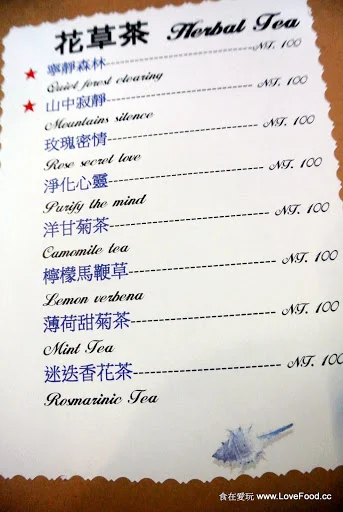 花草茶 Herbal Tea
★寧靜森林--------------------NT. 100
Quiet forest clearing
★山中寂靜--------------------NT. 100
Mountains silence
玫瑰密情--------------------NT. 100
Rose secret love
淨化心靈--------------------NT. 100
Purify the mind
洋甘菊茶--------------------NT. 100
Camomile tea
檸檬馬鞭草--------------------NT. 100
Lemon verbena
薄荷甜菊茶--------------------NT. 100
Mint Tea
迷迭香花茶--------------------NT. 100
Rosmarinic Tea
食在愛玩 www.LoveFood.cc